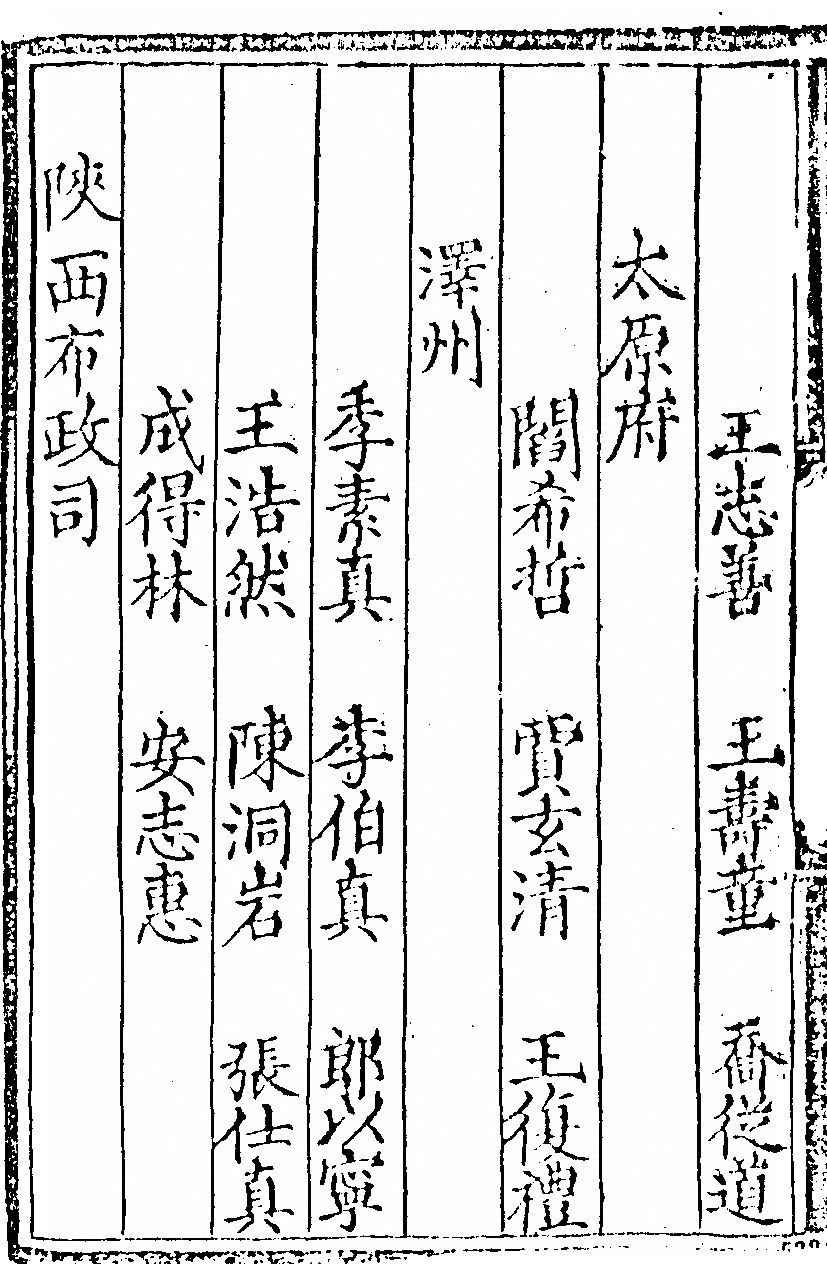 王志善　王壽童　喬從道
太原府
閻希哲　賈玄清　王復禮
澤州
季素真　李伯真　郎以寧
王浩然　陳洞岩　張仕真
成得林　安志惠
陝西布政司